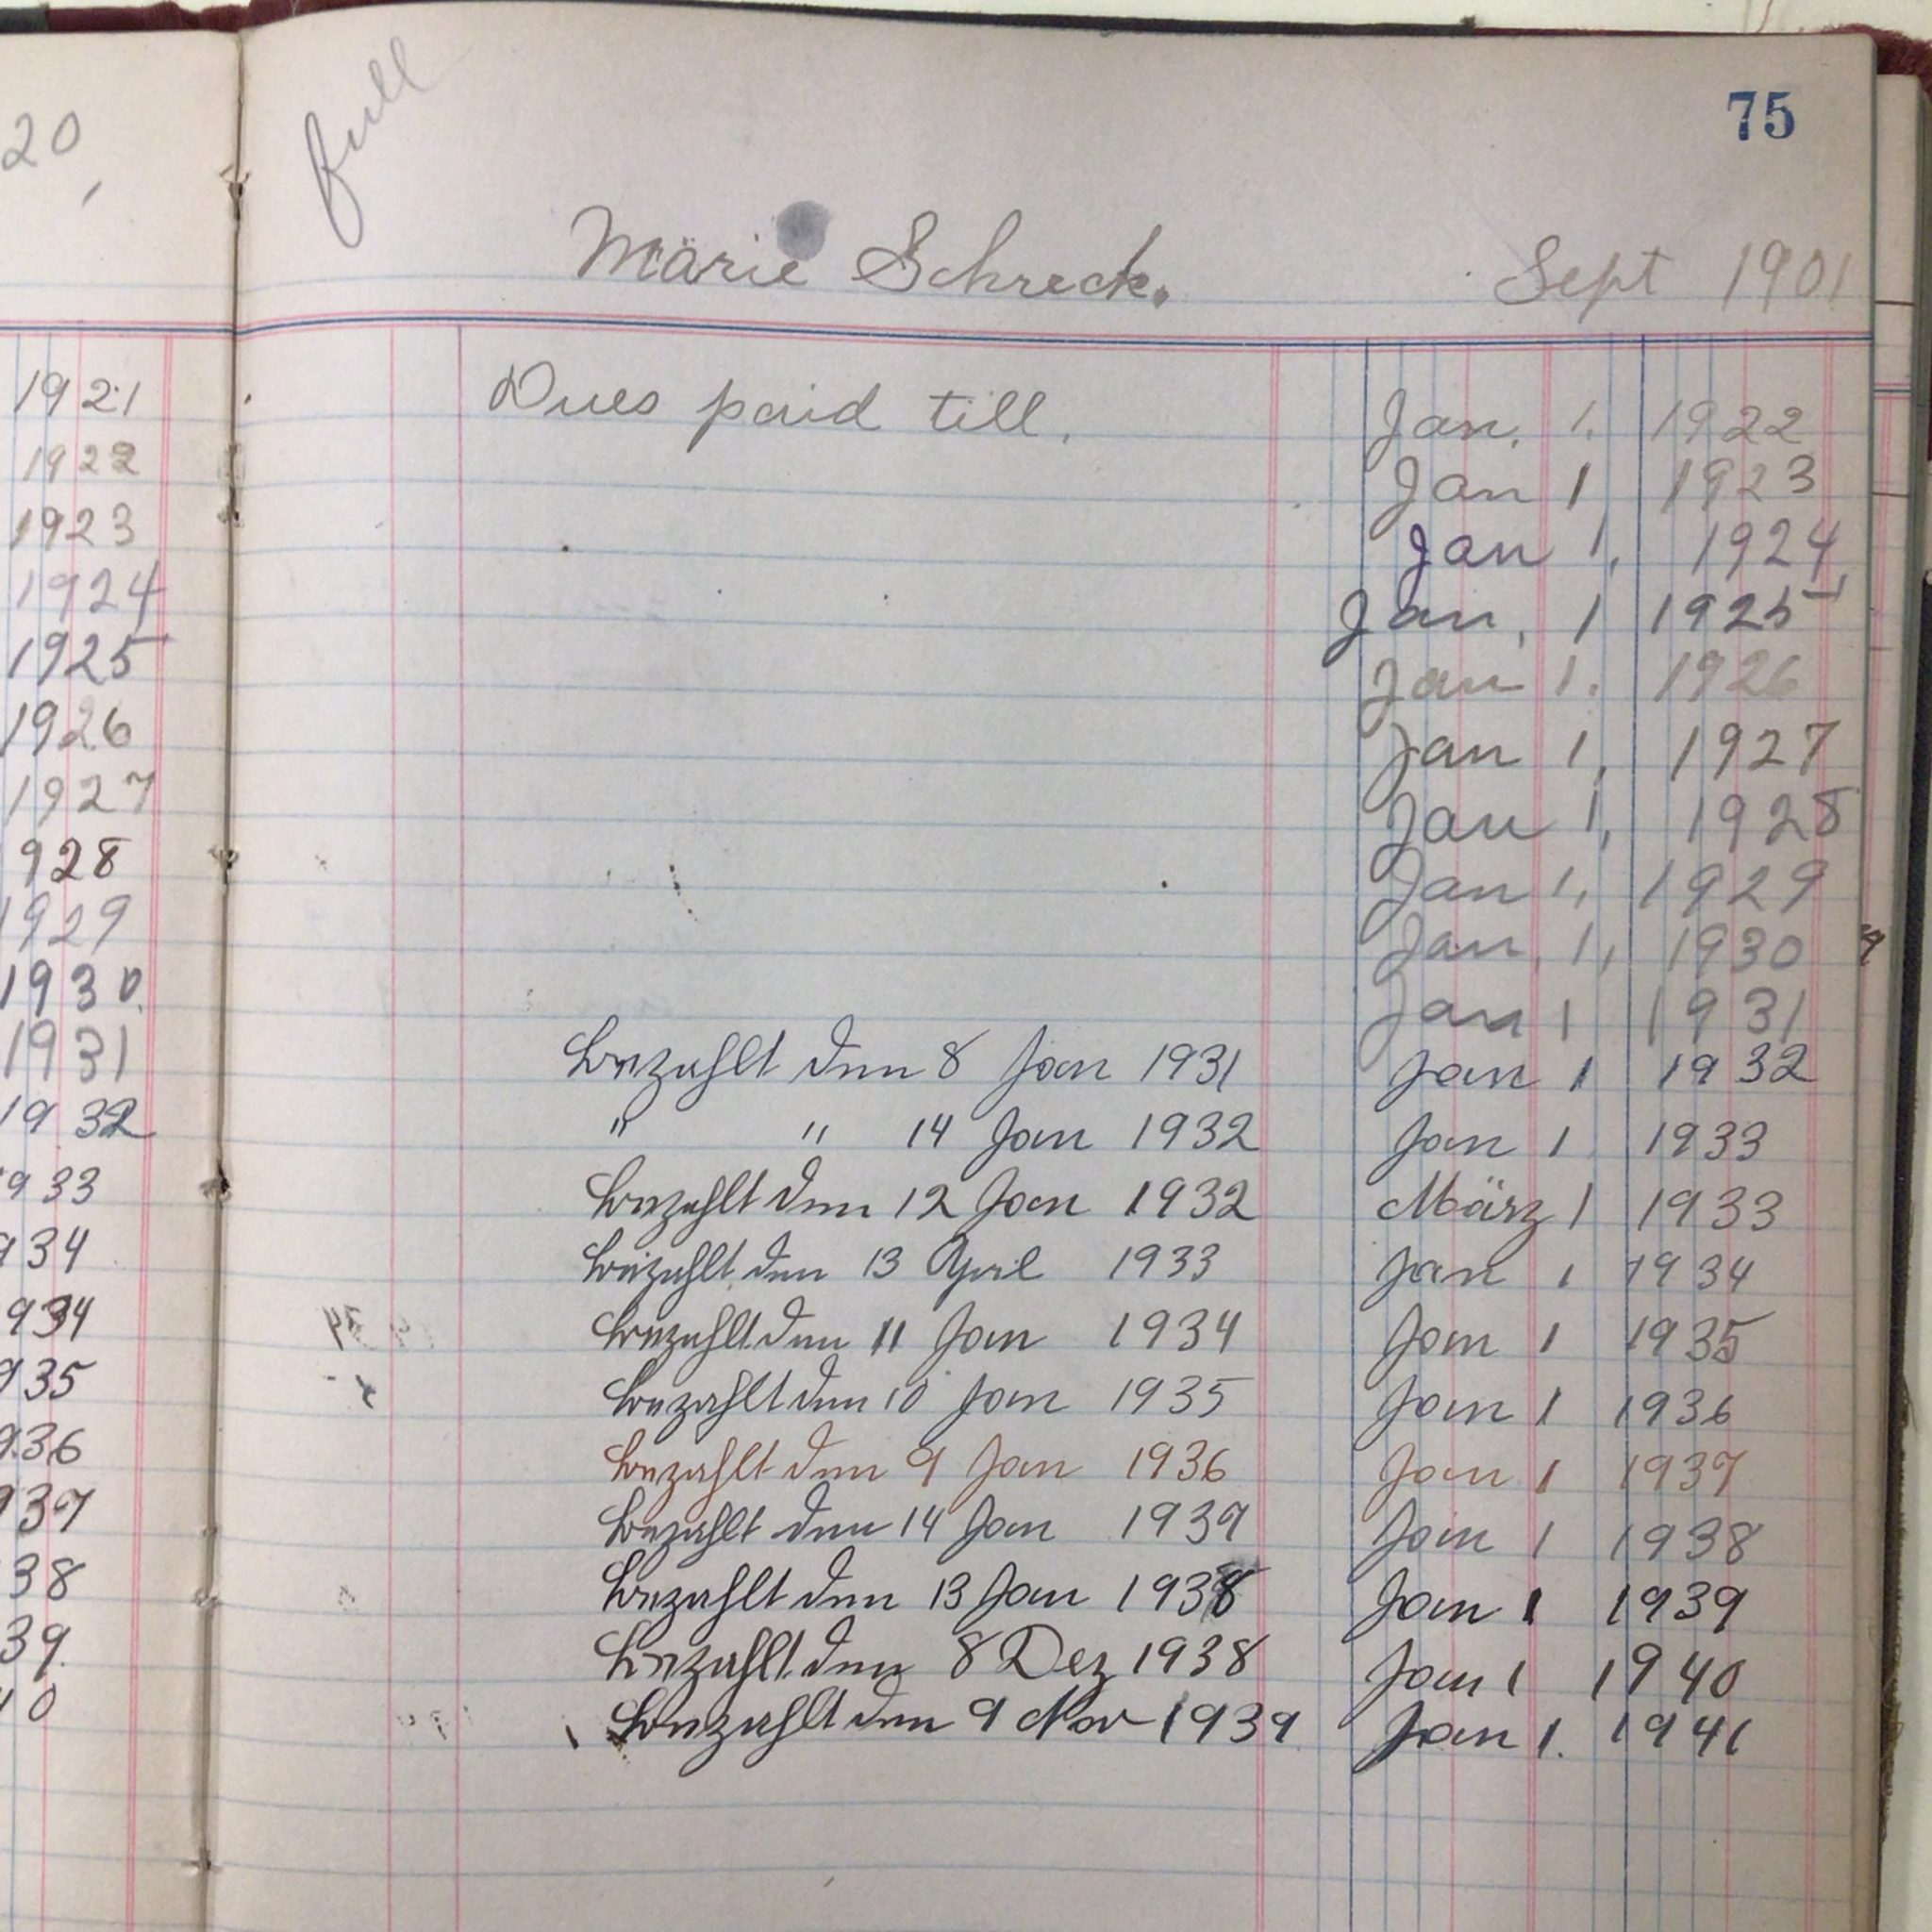 20,
1921
1922
1923
1924
1925
1926
1927
928
1929
1930.
1931
1932
933
934
934
935
936
937
38
39.
40
full
75
Märie Schreck. Sept 1901
Dues paid till. Jan. 1. 1922
Jan 1 1923
Jan 1, 1924
Jan, 1 1925
Jan 1. 1926
Jan 1, 1927
Jan 1, 1928
Jan 1, 1929
Jan. 1, 1930
Jan 1 1931
bezahlt den 8 Jan 1931 Jan 1 1932
" " 14 Jan 1932 Jan 1 1933
bezahlt den 12 Jan 1932 März 1 1933
bezahlt den 13 April 1933 Jan 1 1934
bezahlt den 11 Jan 1934 Jan 1 1935
bezahlt den 10 Jan 1935 Jan 1 1936
bezahlt den 9 Jan 1936 Jan 1 1937
bezahlt den 14 Jan 1937 Jan 1 1938
bezahlt den 13 Jan 1938 Jan 1 1939
bezahlt den 8 Dez 1938 Jan 1 1940
bezahlt den 9 Nov 1939 Jan 1. 1941